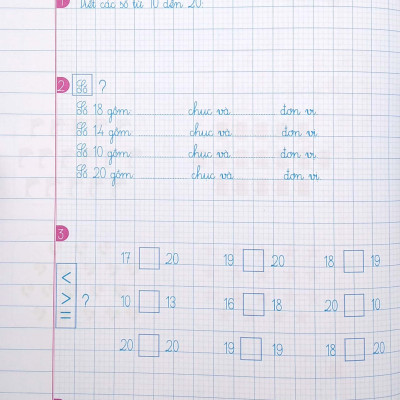 1 Viết các số từ 10 đến 20:
2 ?
18 gồm chục và đơn vị
14 gồm chục và đơn vị
10 gồm chục và đơn vị
20 gồm chục và đơn vị
3
17 20 19 20 18 19
<
> ?
=
10 13 16 18 20 10
20 20 19 19 18 20